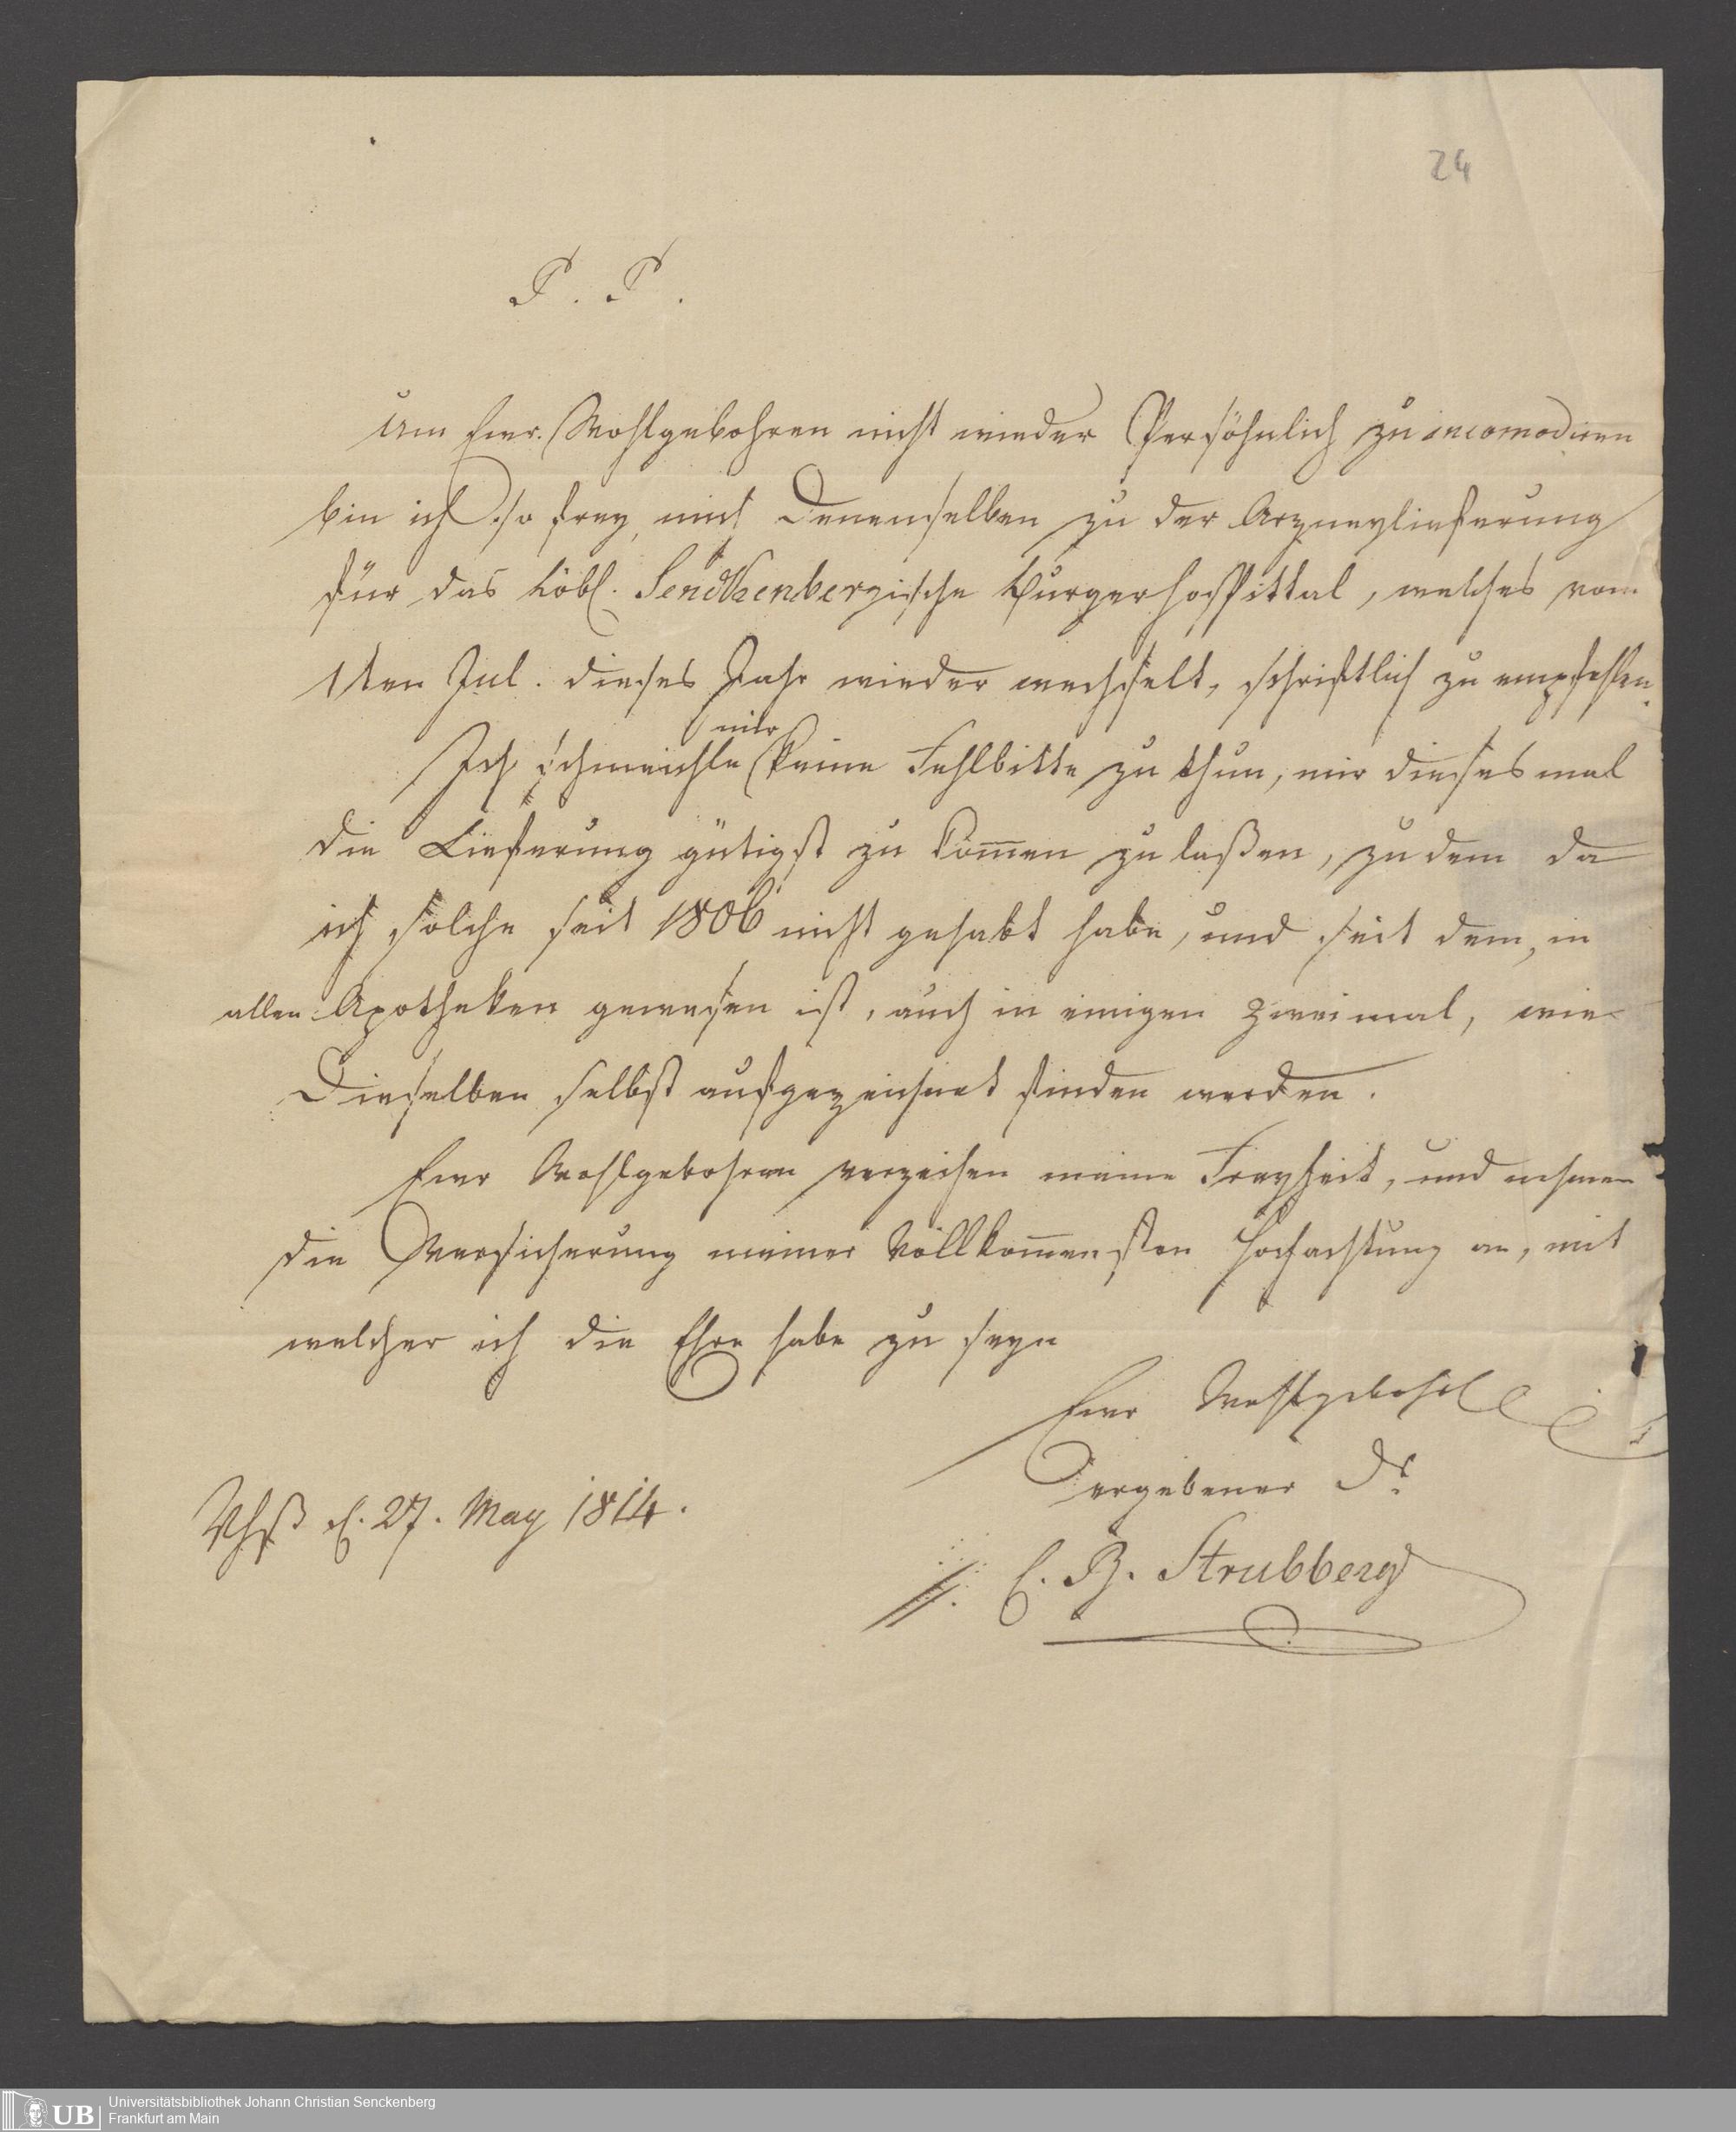 24
P. P.
Um Ewr. Wohlgebohren nicht wieder Persöhnlich zu incomodiren
bin ich so frey, mich Denenselben zu der Arzneylieferung
für das Löbl. Senckenbergische Burgerhospittal, welches vom
1ten Jul. dieses Jahr wieder wechselt, schriftlich zu empfehlen.
mir
Ich schmeichle keine Fehlbitte zu thun, mir dieses mal
die Lieferung gütigst zu kom̅en zu laßen, zu dem da
ich solche seit 1806 nicht gehabt habe, und seit dem, in
allen Apotheken gewesen ist, auch in einigen zweimal, wie
Dieselben selbst aufgezeichnet finden werden.
Ewr Wohlgebohren verzeihen meine Freyheit, und nehmen
die Versicherung meiner Vollkom̅ensten Hochachtung an, mit
welcher ich die Ehre habe zu seyn
Ewr Wohlgebohr
ergebener Dr
Vhß d. 27. May 1814.
C. B. Strubberg
UB
Universitätsbibliothek Johann Christian Senckenberg
Frankfurt am Main